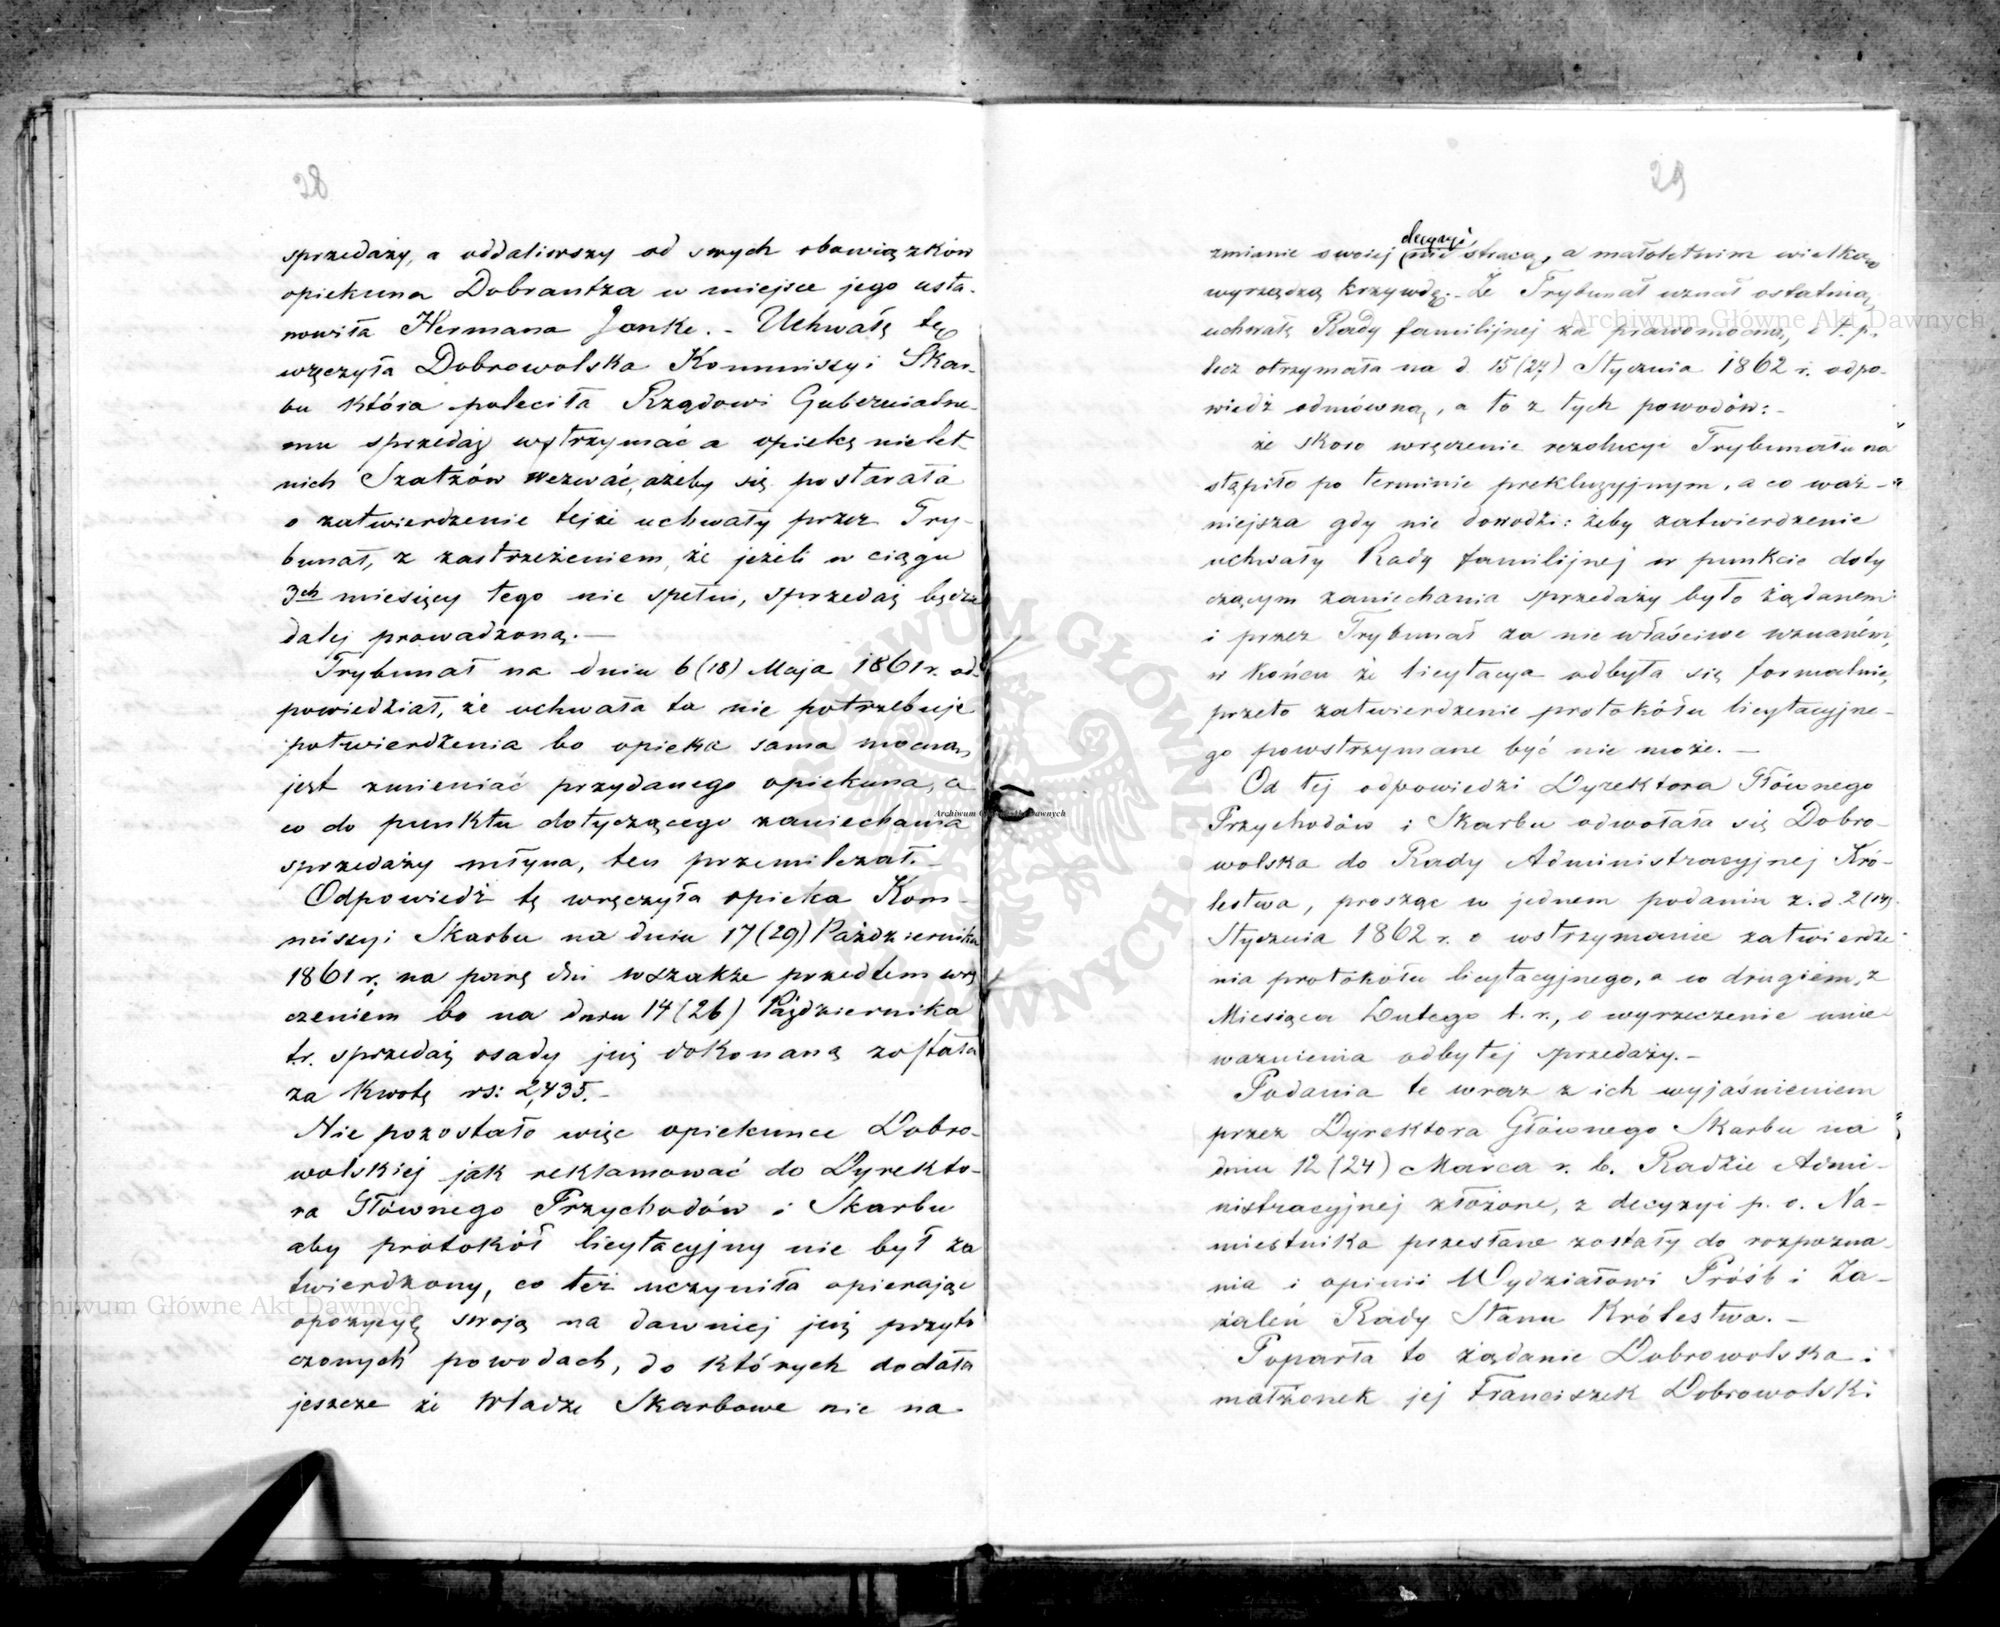 28
sprzedaży, a oddaliwszy od swych obowiązków
opiekuna Dobrantza w miejsce jego usta-
nowiła Hermana Janke. – Uchwałę tę
wręczyła Dobrowolska Kommissyi Skar-
bu która poleciła Rządowi Gubernialne-
mu sprzedaż wstrzymać a opiekę nielet
nich Szatzów wezwać, ażeby się postarała
o zatwierdzenie tejże uchwały przez Try-
bunał, z zastrzeżeniem, że jeżeli w ciągu
3ch miesięcy tego nie spełni, sprzedaż będzie
dalej prowadzoną. —
Trybunał na dniu 6 (18) Maja 1861 r. od-
powiedział, że uchwała ta nie potrzebuje
potwierdzenia bo opieka sama mocną
jest zmieniać przydanego opiekuna, a
co do punktu dotyczącego zaniechania
sprzedaży młyna, ten przemilczał. –
Odpowiedź tę wręczyła opieka Kom-
missyi Skarbu na dniu 17 (29) Października
1861 r. na parę dni wszakże przedtem wrę
czeniem bo na dniu 14 (26) Października
t.r. sprzedaż osady już dokonaną została
za kwotę rs: 2,435. –
Nie pozostało więc opiekunce Dobro-
wolskiej jak reklamować do Dyrekto-
ra Głównego Przychodów i Skarbu
aby protokół licytacyjny nie był za
twierdzony, co też uczyniła opierając
opozycyę swoją na dawniej już przyto
czonych powodach, do których dodała
jeszcze że Władze Skarbowe nic na
29
decyzyi,
zmianie swojej nic stracą, a małoletnim wielką
wyrządzą krzywdę. – Że Trybunał uznał ostatnią
uchwałę Rady familijnej za prawomocną, i t. p.
lecz otrzymała na d. 15 (27) Stycznia 1862 r. odpo-
wiedź odmówną, a to z tych powodów: –
że skoro wręczenie rezolucyi Trybunału na
stąpiło po terminie prekluzyjnym, a co waż-
niejsza gdy nie dowodzi: żeby zatwierdzenie
uchwały Rady familijnej w punkcie doty
czącym zaniechania sprzedaży było żądanem
i przez Trybunał za nie właściwe uznaném,
w końcu że licytacya odbyta się formalnie,
przeto zatwierdzenie protokółu licytacyjne-
go powstrzymane być nie może. —
Od tej odpowiedzi Dyrektora Głównego
Przychodów i Skarbu odwołała się Dobro-
wolska do Rady Administracyjnej Kró-
lestwa, prosząc w jednem podaniu z. d. 2 (14)
Stycznia 1862 r. o wstrzymanie zatwierdze
nia protokółu licytacyjnego, a w drugiem, z
Miesiąca Lutego t. r., o wyrzeczenie unie-
ważnienia odbytej sprzedaży. –
Podania te wraz z ich wyjaśnieniem
przez Dyrektora Głównego Skarbu na
dniu 12 (24) Marca r. b. Radzie Admi-
nistracyjnej złożone, z decyzyi p. o. Na-
miestnika przesłane zostały do rozpozna-
nia i opinii Wydziałowi Próśb i Za-
żaleń Rady Stanu Królestwa. –
Poparła to żądanie Dobrowolska i
małżonek jej Franciszek Dobrowolski
Archiwum Główne Akt Dawnych
Archiwum Główne Akt Dawnych
Archiwum Główne Akt Dawnych
ARCHIWUM GŁÓWNE AKT DAWNYCH